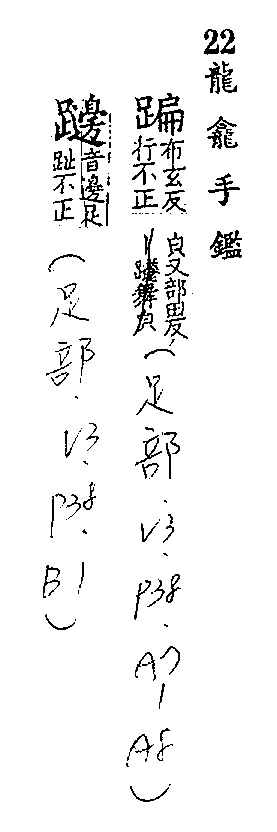 22 龍龕手鑑
蹁 布玄反 行不正 皃又部田反、〢蹮舞皃 (足部.V3.P38.A7|A8)
𨇭 音邊足 趾不正 (足部.V3.P38.B1)